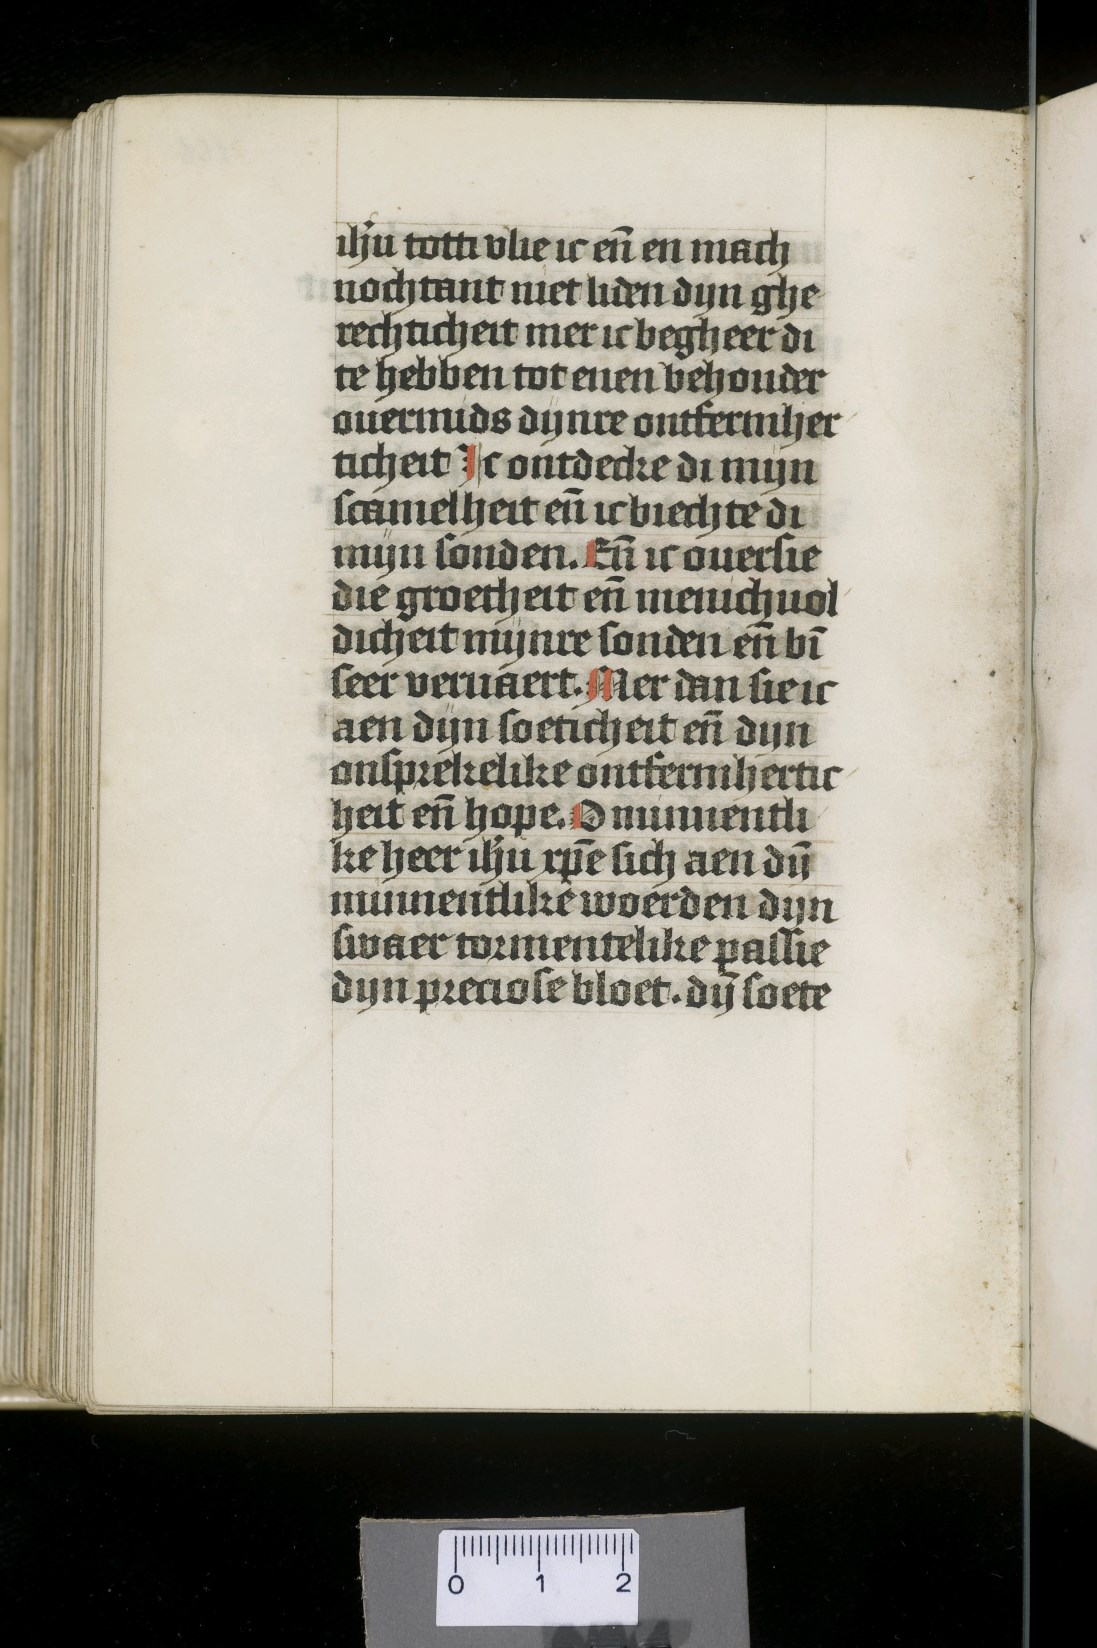 ihū totti vlie ic eñ en mach
nochtant niet liden dijn ghe
rechticheit mer ic begheer di
te hebben tot enen behouder
ouermids dijnre ontfermher
ticheit Ic ontdecke di mijn
scamelheit eñ ic biechte di
mijn sonden. Eñ ic ouersie
die groetheit eñ menichuol
dicheit mijnre sonden eñ bī
seer veruaert. Mer dan sie ic
aen dijn soeticheit eñ dijn
onsprekelike ontfermhertic
heit eñ hope. O minnentli
ke heer ihū xp̄e sich aen dij̄
minnentlike woerden dijn
swaer tormentelike passie
dijn preciose bloet. dij̄ soete
0 1 2